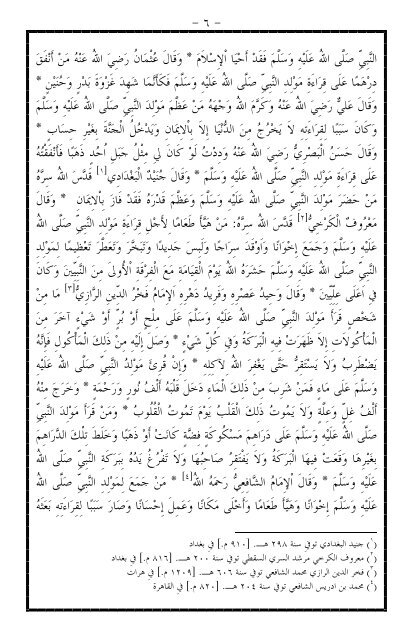 - ٦ -
النَّبِيِّ صَلَّى اللهُ عَلَيْهِ وَسَلَّمَ فَقَدْ أَحْيَا الْإِسْلَامَ * وَقَالَ عُثْمَانُ رَضِيَ اللهُ عَنْهُ مَنْ أَنْفَقَ
دِرْهَمًا عَلَى قِرَاءَةِ مَوْلِدِ النَّبِيِّ صَلَّى اللهُ عَلَيْهِ وَسَلَّمَ فَكَأَنَّمَا شَهِدَ غَزْوَةَ بَدْرٍ وَحُنَيْنٍ *
وَقَالَ عَلِيٌّ رَضِيَ اللهُ عَنْهُ وَكَرَّمَ اللهُ وَجْهَهُ مَنْ عَظَّمَ مَوْلِدَ النَّبِيِّ صَلَّى اللهُ عَلَيْهِ وَسَلَّمَ
وَكَانَ سَبَبًا لِقِرَاءَتِهِ لاَ يَخْرُجُ مِنَ الدُّنْيَا إِلاَّ بِالْاِيمَانِ وَيَدْخُلُ الْجَنَّةَ بِغَيْرِ حِسَابٍ *
وَقَالَ حَسَنُ الْبَصْرِيُّ رَضِيَ اللهُ عَنْهُ وَدِدْتُ لَوْ كَانَ لِي مِثْلُ جَبَلِ أُحُدٍ ذَهَبًا فَأَنْفَقْتُهُ
عَلَى قِرَاءَةِ مَوْلِدِ النَّبِيِّ صَلَّى اللهُ عَلَيْهِ وَسَلَّمَ * وَقَالَ جُنَيْدٌ الْبَغْدَادِي[١] قَدَّسَ اللهُ سِرَّهُ
مَنْ حَضَرَ مَوْلِدَ النَّبِيِّ صَلَّى اللهُ عَلَيْهِ وَسَلَّمَ وَعَظَّمَ قَدْرَهُ فَقَدْ فَازَ بِالْاِيمَانِ * وَقَالَ
مَعْرُوفُ الْكَرْخِيُّ[٢] قَدَّسَ اللهُ سِرَّهُ: مَنْ هَيَّأَ طَعَامًا لِأَجْلِ قِرَاءَةِ مَوْلِدِ النَّبِيِّ صَلَّى اللهُ
عَلَيْهِ وَسَلَّمَ وَجَمَعَ إِخْوَانًا وَأَوْقَدَ سِرَاجًا وَلَبِسَ جَدِيدًا وَتَبَخَّرَ وَتَعَطَّرَ تَعْظِيمًا لِمَوْلِدِ
النَّبِيِّ صَلَّى اللهُ عَلَيْهِ وَسَلَّمَ حَشَرَهُ اللهُ يَوْمَ الْقِيَامَةِ مَعَ الْفِرْقَةِ الْأُولَى مِنَ النَّبِيِّينَ وَكَانَ
فِي اَعْلَى عِلِّيِّينَ * وَقَالَ وَحِيدُ عَصْرِهِ وَفَرِيدُ دَهْرِهِ الْاِمَامُ فَخْرُ الدِّينِ الرَّازِيُّ[٣] مَا مِنْ
شَخْصٍ قَرَأَ مَوْلِدَ النَّبِيِّ صَلَّى اللهُ عَلَيْهِ وَسَلَّمَ عَلَى مِلْحٍ أَوْ بُرٍّ أَوْ شَيْءٍ آخَرَ مِنَ
الْمَأْكُولَاتِ إِلاَّ ظَهَرَتْ فِيهِ الْبَرَكَةُ وَفِي كُلِّ شَيْءٍ * وَصَلَ إِلَيْهِ مِنْ ذَلِكَ الْمَأْكُولِ فَإِنَّهُ
يَضْطَرِبُ وَلاَ يَسْتَقِرُّ حَتَّى يَغْفِرَ اللهُ لِآكِلِهِ * وَإِنْ قُرِئَ مَوْلِدُ النَّبِيِّ صَلَّى اللهُ عَلَيْهِ
وَسَلَّمَ عَلَى مَاءٍ فَمَنْ شَرِبَ مِنْ ذَلِكَ الْمَاءِ دَخَلَ قَلْبَهُ أَلْفُ نُورٍ وَرَحْمَةٍ * وَخَرَجَ مِنْهُ
أَلْفُ غِلٍّ وَعِلَّةٍ وَلاَ يَمُوتُ ذَلِكَ الْقَلْبُ يَوْمَ تَمُوتُ الْقُلُوبُ * وَمَنْ قَرَأَ مَوْلِدَ النَّبِيِّ
صَلَّى اللهُ عَلَيْهِ وَسَلَّمَ عَلَى دَرَاهِمَ مَسْكُوكَةٍ فِضَّةً كَانَتْ أَوْ ذَهَبًا وَخَلَطَ تِلْكَ الدَّرَاهِمَ
بِغَيْرِهَا وَقَعَتْ فِيهَا الْبَرَكَةُ وَلاَ يَفْتَقِرُ صَاحِبُهَا وَلاَ تَفْرُغُ يَدُهُ بِبَرَكَةِ النَّبِيِّ صَلَّى اللهُ
عَلَيْهِ وَسَلَّمَ * وَقَالَ الْإِمَامُ الشَّافِعِيُّ رَحِمَهُ اللهُ[٤] * مَنْ جَمَعَ لِمَوْلِدِ النَّبِيِّ صَلَّى اللهُ
عَلَيْهِ وَسَلَّمَ إِخْوَانًا وَهَيَّأَ طَعَامًا وَأَخْلَى مَكَانًا وَعَمِلَ إِحْسَانًا وَصَارَ سَبَبًا لِقِرَاءَتِهِ بَعَثَهُ
(١) جنيد البغدادي توفي سنة ٢٩٨ هـ. [٩١٠ م.] في بغداد
(٢) معروف الكرخي مرشد السري السقطي توفي سنة ٢٠٠ هـ. [٨١٦ م.] في بغداد
(٣) فخر الدين الرازي محمد الشافعي توفي سنة ٦٠٦ هـ. [١٢٠٩ م.] في هرات
(٤) محمد بن ادريس الشافعي توفي سنة ٢٠٤ هـ. [٨٢٠ م.] في القاهرة